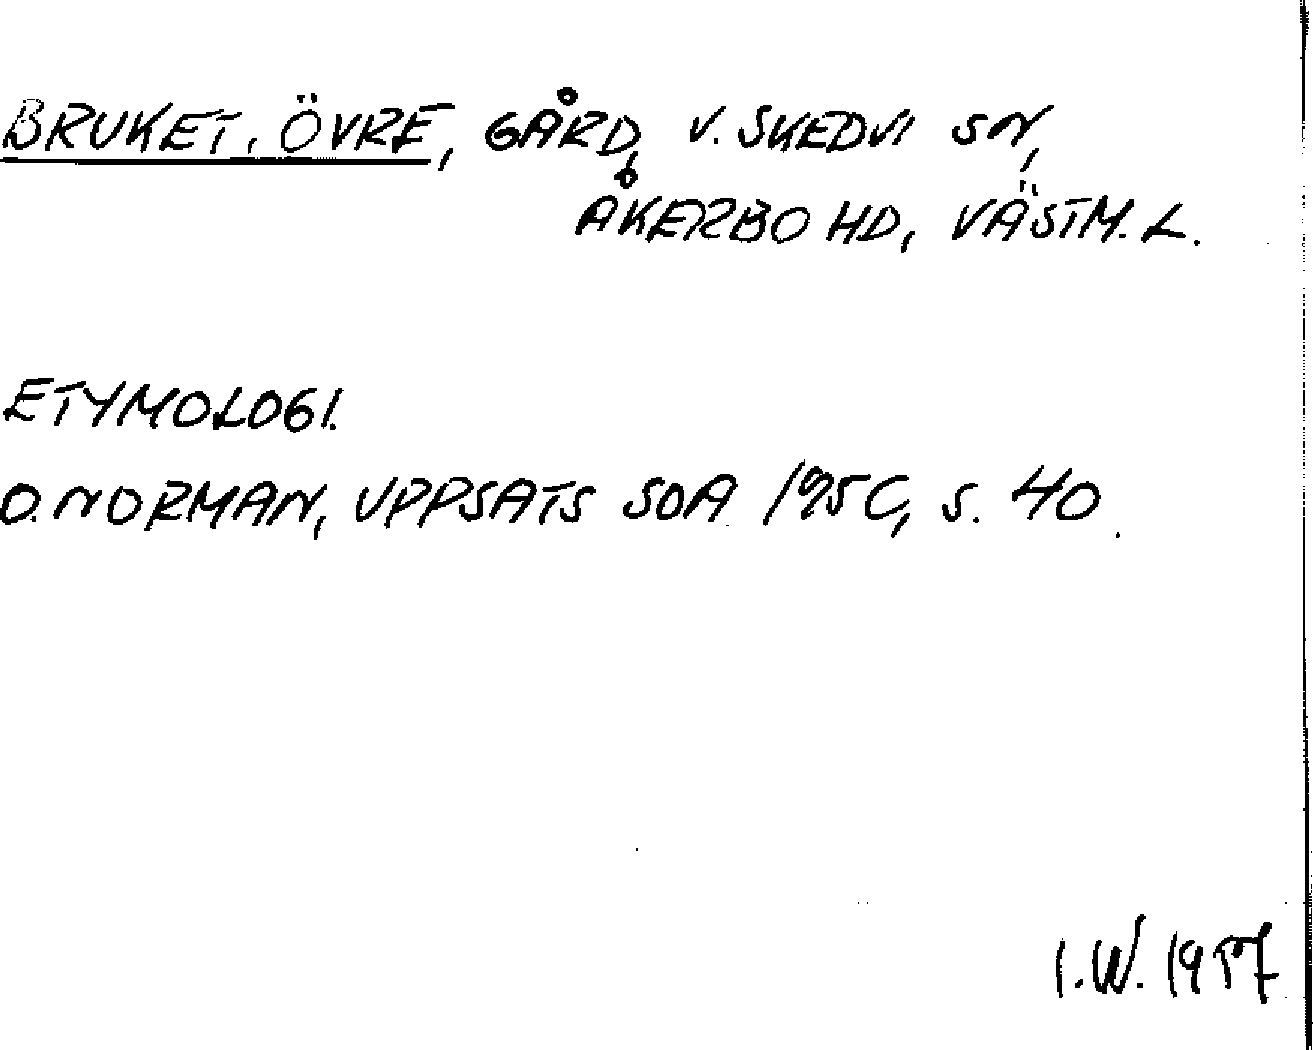 BRUKET, ÖVRE, GÅRD, V. SKEDVI SN,
ÅKERBO HD, VÄSTM. L.
ETYMOLOGI.
O. NORMAN, UPPSATS SOA 1950, S. 40.
I.W. 1957